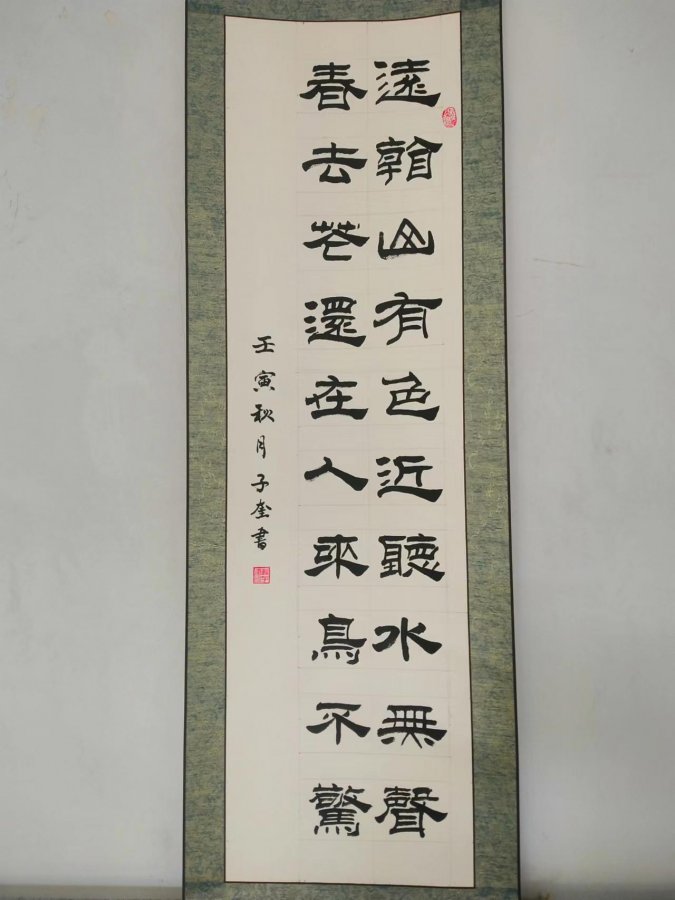 遠翰山有色近聽水無聲
春去花還在人來鳥不驚
壬寅秋月子奎書